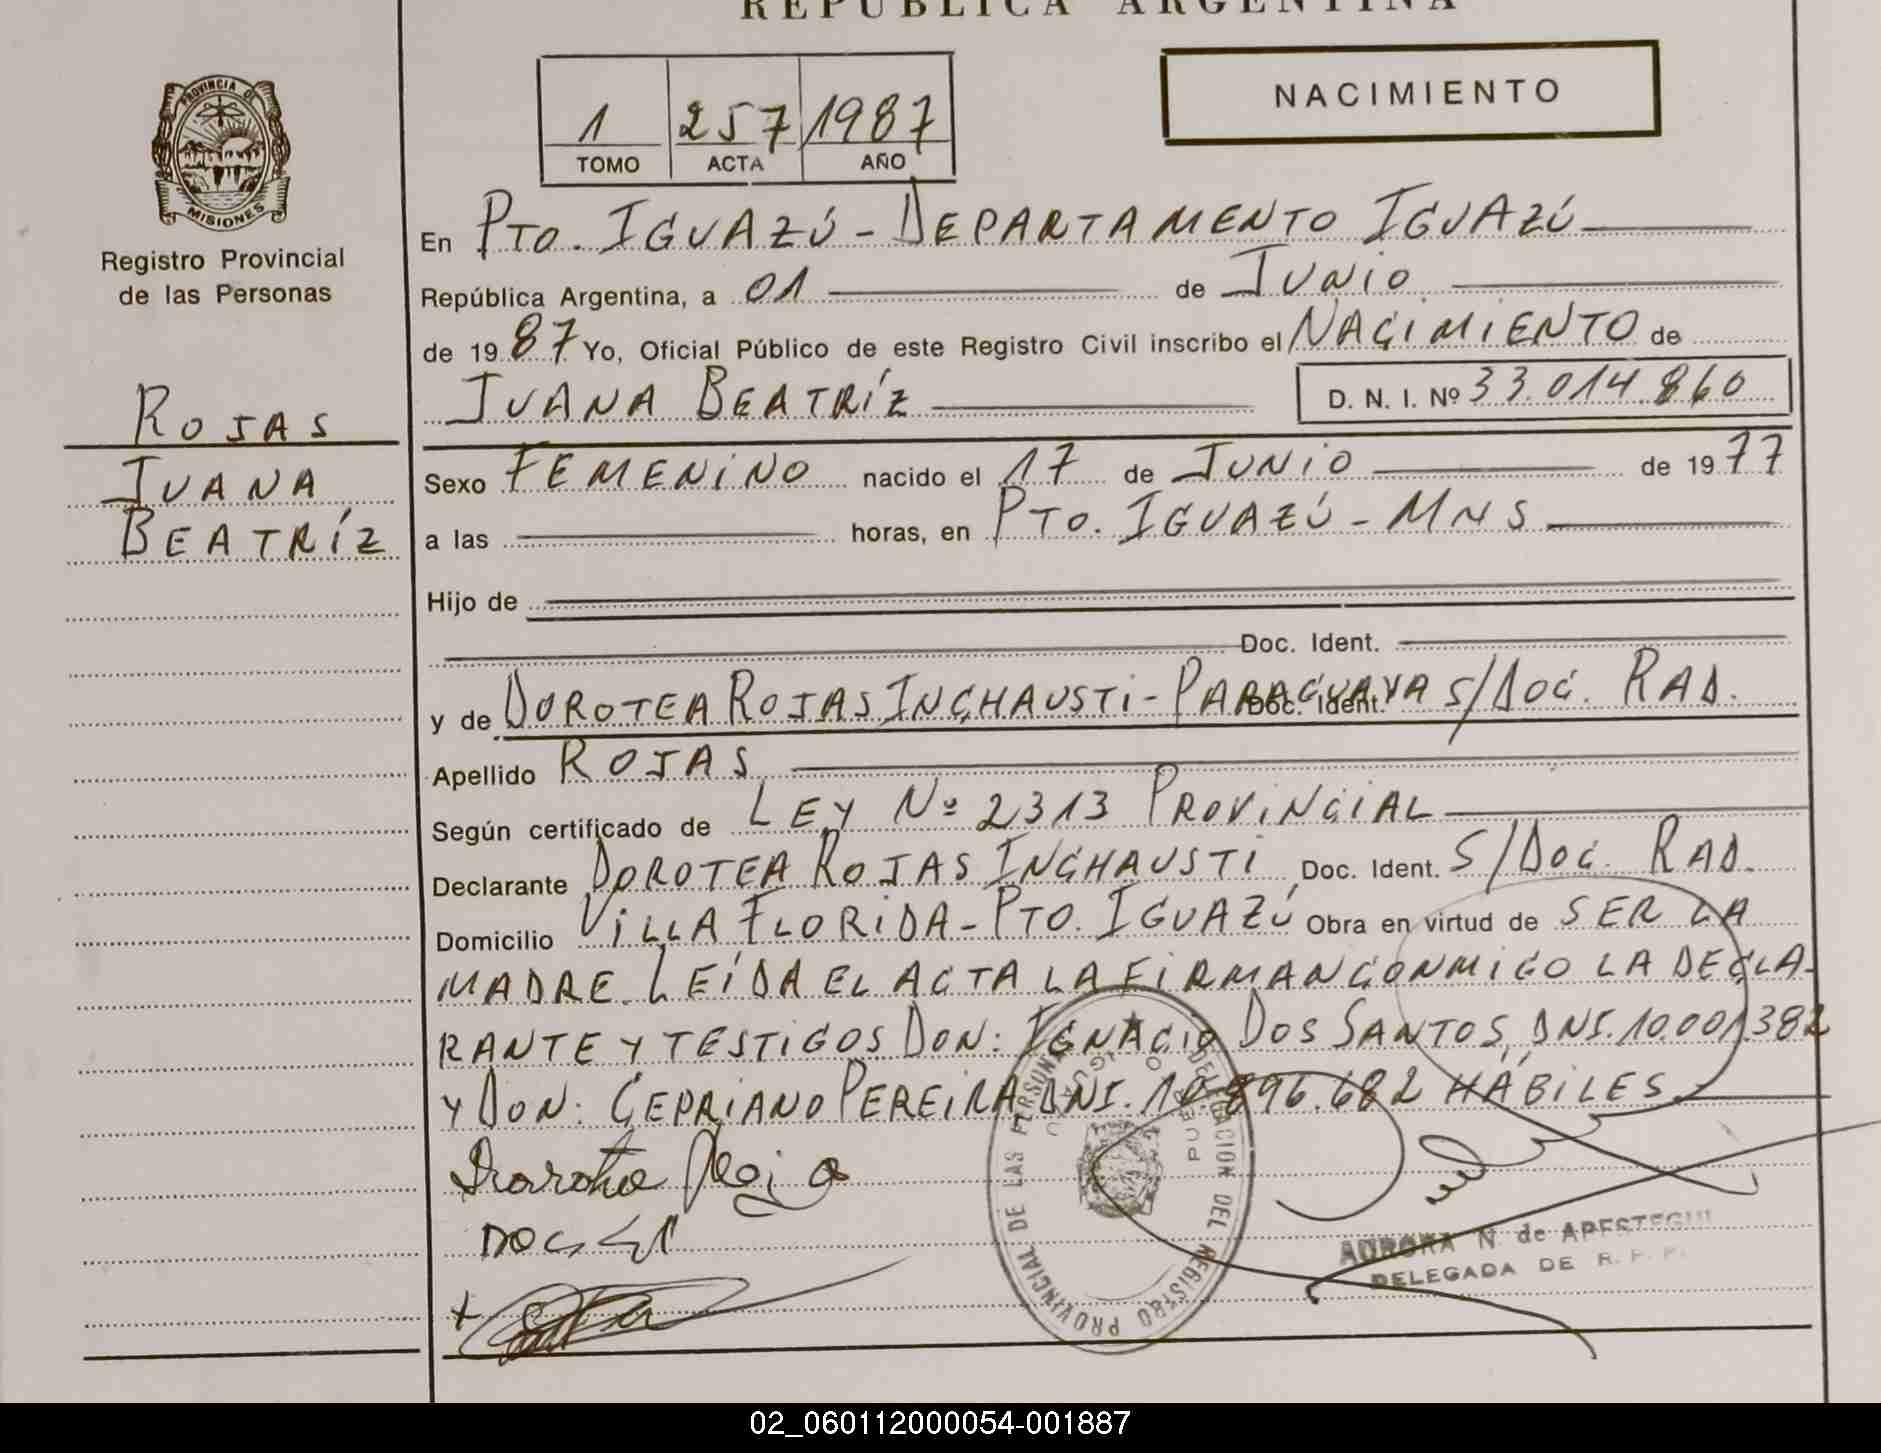 REPUBLICA ARGENTINA
PROVINCIA DE
MISIONES
Registro Provincial
de las Personas
1 257 1987
TOMO ACTA AÑO
NACIMIENTO
En PTO. IGUAZÚ - DEPARTAMENTO IGUAZÚ
República Argentina, a 01 de JUNIO
de 1987 Yo, Oficial Público de este Registro Civil inscribo el NACIMIENTO de
JUANA BEATRÍZ D. N. I. Nº 33.014.860
ROJAS
JUANA
BEATRÍZ
Sexo FEMENINO nacido el 17 de JUNIO de 1977
a las horas, en PTO. IGUAZÚ - MNS
Hijo de
Doc. Ident.
y de DOROTEA ROJAS INCHAUSTI - PARAGUAYA Doc. Ident. S/DOC. RAD.
Apellido ROJAS
Según certificado de LEY Nº 2313 PROVINCIAL
Declarante DOROTEA ROJAS INCHAUSTI Doc. Ident. S/DOC. RAD.
Domicilio VILLA FLORIDA - PTO. IGUAZÚ Obra en virtud de SER LA
MADRE. LEÍDA EL ACTA LA FIRMAN CONMIGO LA DECLA-
RANTE Y TESTIGOS DON: IGNACIO DOS SANTOS, DNI. 10.001.382
Y DON: CEPRIANO PEREIRA DNI. 10.896.682 HÁBILES
DELEGACION DEL REGISTRO PROVINCIAL DE LAS PERSONAS
PUERTO IGUAZU
AURORA N. de APESTEGUI
DELEGADA DE R. P. P.
02_060112000054-001887